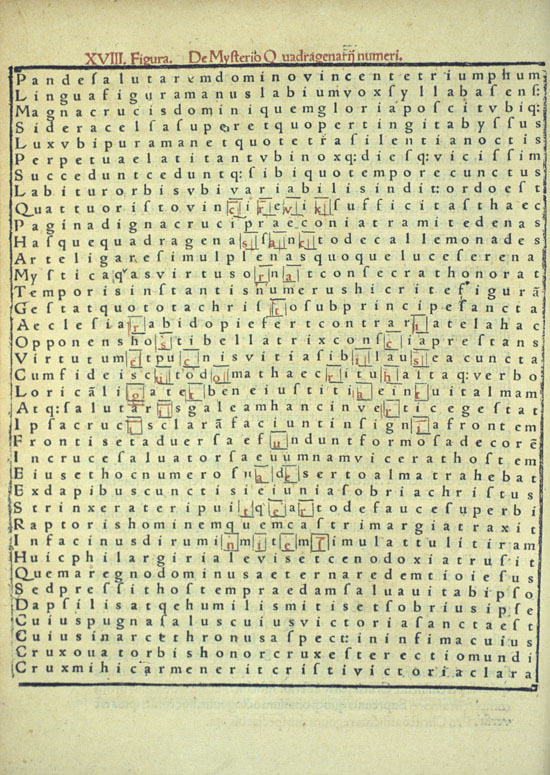 XVIII. Figura. De Myſterio Quadragenarij numeri.
Pandeſalutaremdominovincentetriumphum
Linguafiguramanuslabiumvoxſyllabaſenſ:
Magnacrucisdominiquemgloriapoſcitvbiq:
Sideracelſaſuperetquopertingitabyſſus
Luxvbipuramanetquotetraſilentianoctis
Perpetuaelatitantvbinoxq:dieſq:viciſſim
Succedunt­ceduntq:ſibiquotemporecunctus
Labiturorbisvbivariabilisindit:ordoeſt
Quattuoriſtovincirevikſufficitaſthaec
Paginadignacrucipraeconiatramitedenas
Haſquequadragenasſanctodecallemonades
Arteligareſimulplenasquoqueluceſerena
Myſticaqasvirtusornatconſecrathonorat
Temporisinſtantisnumerushicriteſigurā
Geſtatquototachriſtoſubprincipeſancta
Aecleſiarabidopiefertcontrariatelahac
Opponenshoſtibellatrixconſciapreſtans
Virtutumetpucnisvitiaſibillauseacuncta
Cumfideiscitodomathaecrituhaitaq:verbo
Loricālioatetbeneiuſtitiaeintuitalmam
Atq:ſalutarisgaleamhancinverticegeſtat
Ipſacrucisclarāfaciuntinſigniafrontem
Frontiſetaduerſaefunduntformoſadecorē
Incruceſaluatorſaeuumnamvicerathoſtem
Eiusethocnumeroſuadeſertoalmatrahebat
Exdapibuscunctisieiuniaſobriachriſtus
Strinxerateripuitqeartodefauceſuperbi
Raptorishominemquemcaſtrimargiatraxit
Infacinusdirumimitem⁊imulattulitiram
Huicphilargirialeviſetcenodoxiatruſit
Quemaregnodominusaeternaredemtioieſus
Sedpreſſithoſtempraedamſaluauitabipſo
Dapſilisatqehumilismitisetſobriusipſe
Cuiuspugnaſaluscuiusvictoriaſanctaeſt
Cuiusinarcethronusaſpect:ininfimacuius
Cruxouatorbishonorcruxeſterectiomundi
Cruxmihicarmeneritcriſtivictoriaclara